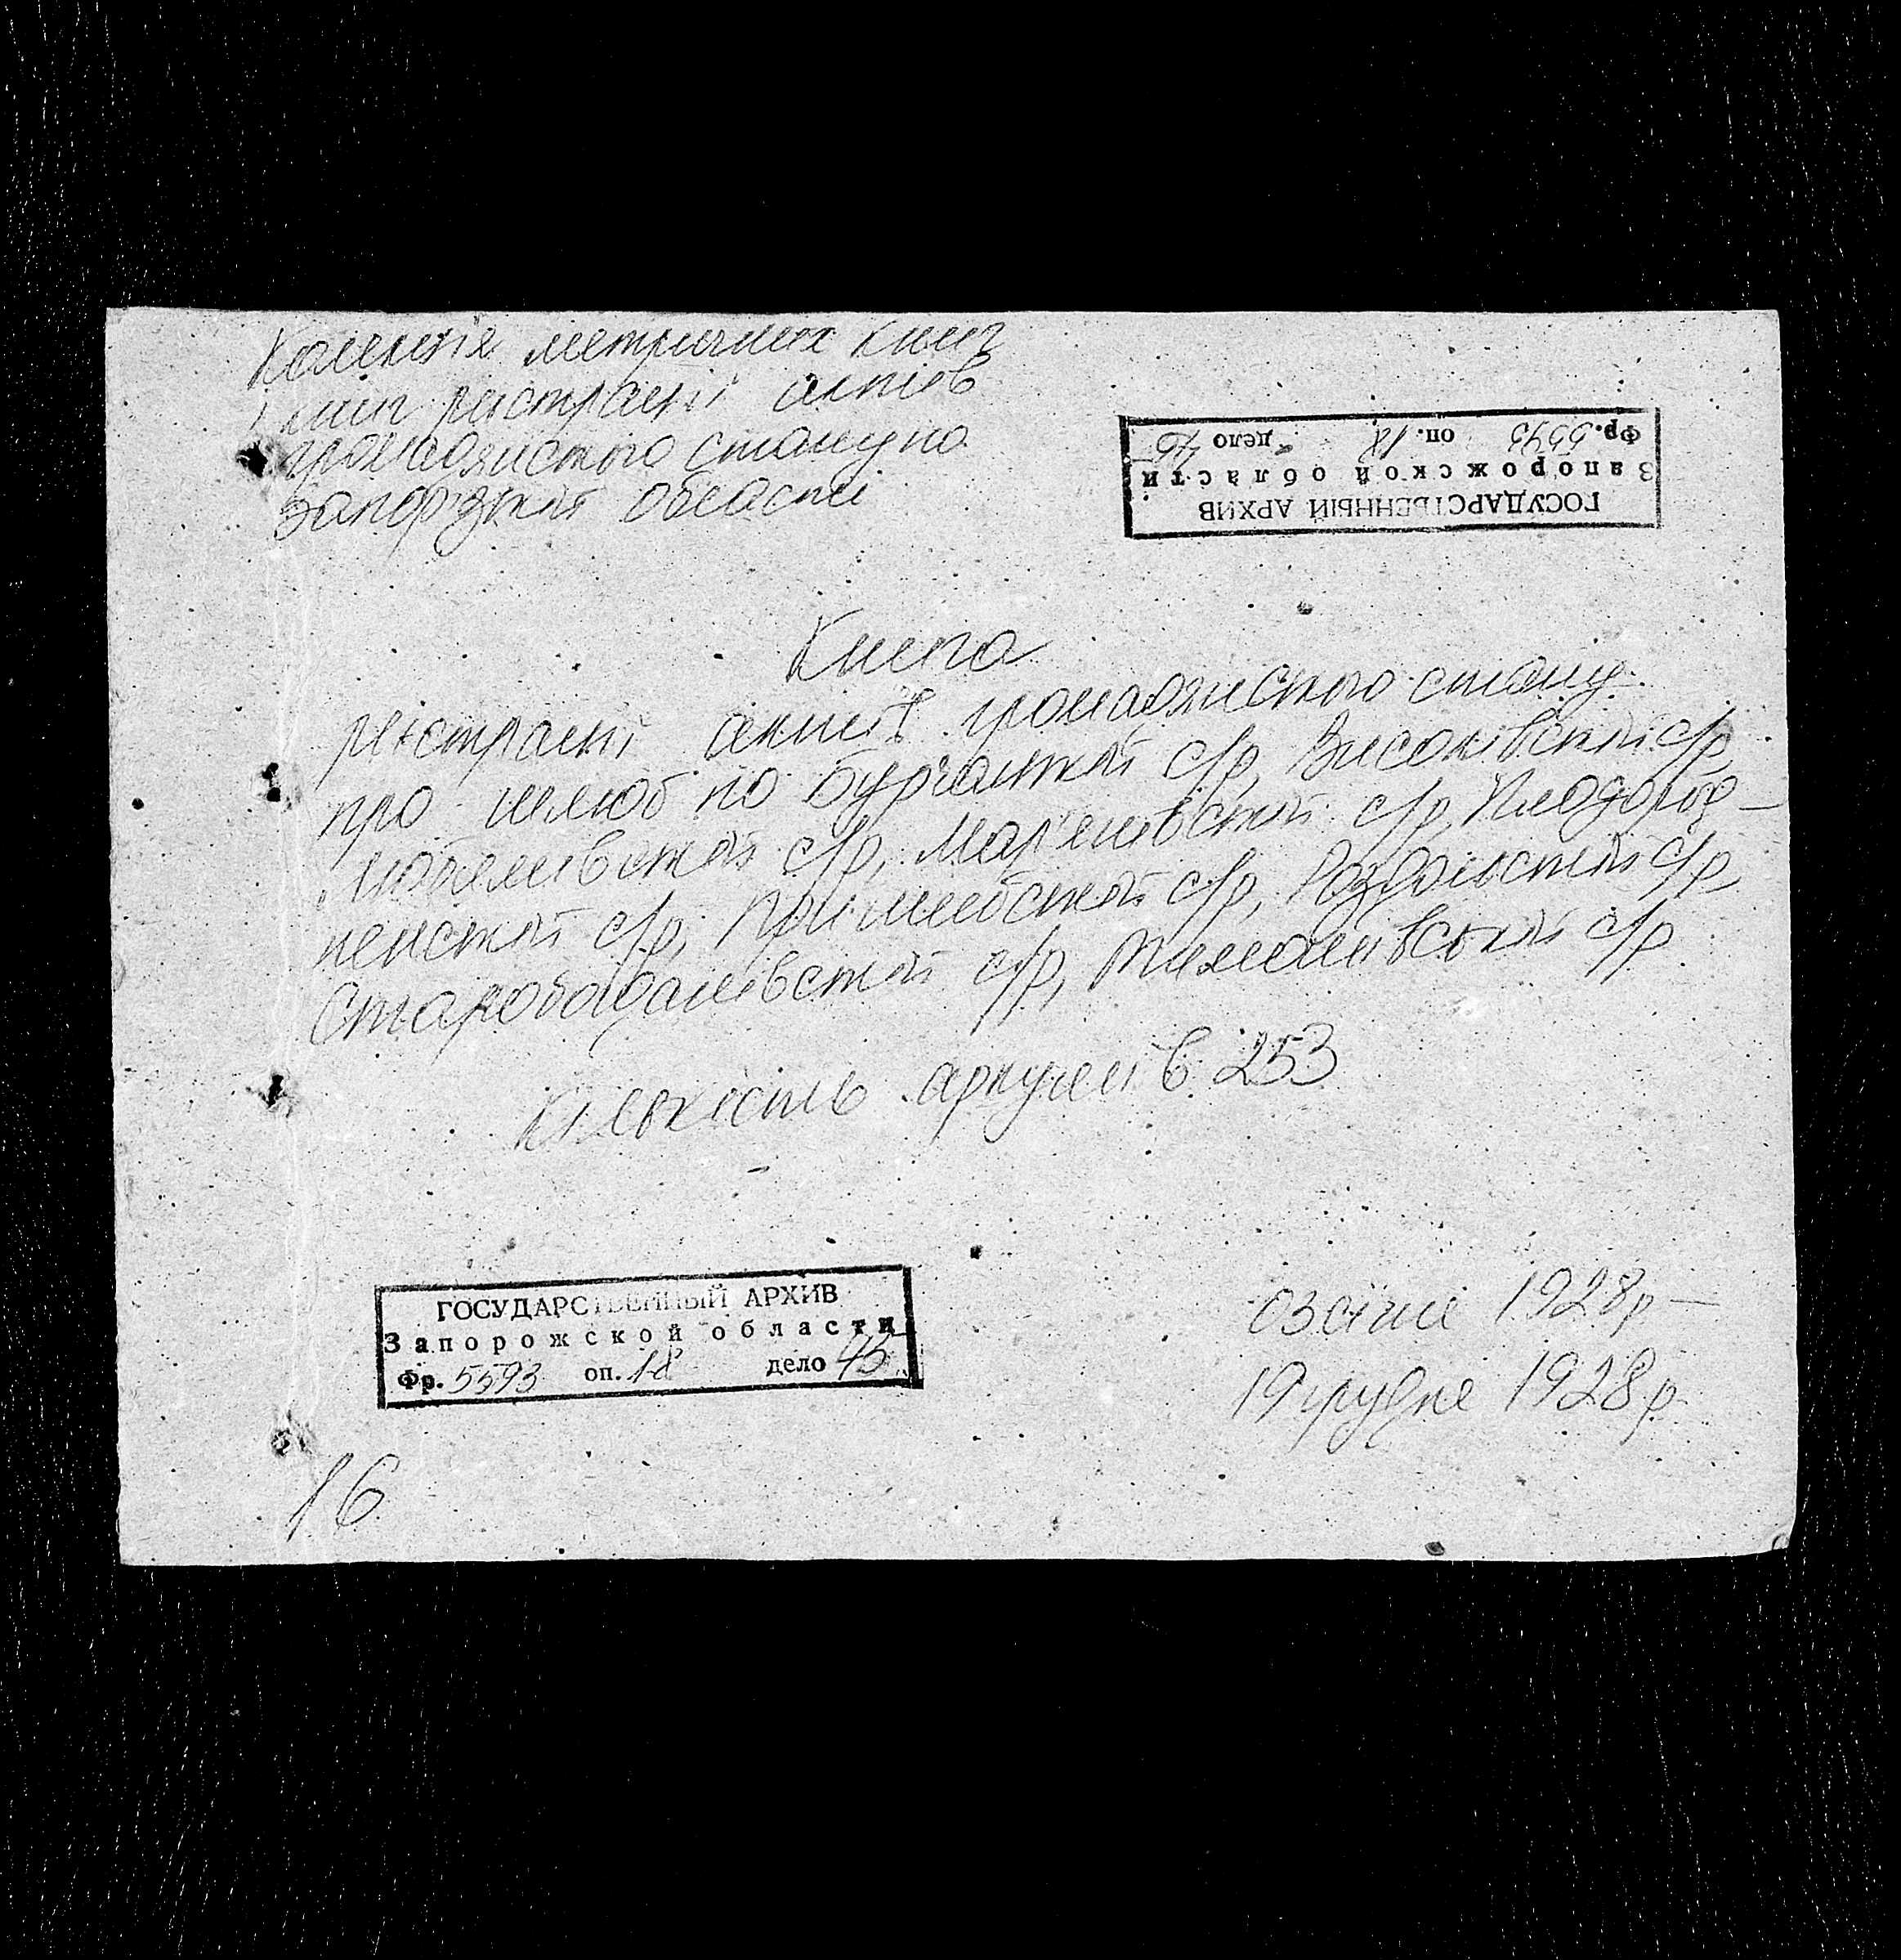 Колекція метричних книг
і книг реєстрації актів
громадянського стану по
Запорізькій області
ГОСУДАРСТВЕННЫЙ АРХИВ
Запорожской области
Фр. 5593 оп. 18 дело
Книга
реєстрації актів громадянського стану
про шлюб по Бурчацькій с/р, Високівській с/р,
с/р, Мар'янівській с/р,
с/р, Пришибській с/р, Роздольській с/р,
Старобогданівській с/р, Тимошівській с/р
Кількість аркушів 253
ГОСУДАРСТВЕННЫЙ АРХИВ
Запорожской области
Фр. 5593 оп. 18 дело 45
03 січня 1928 р –
19 грудня 1928 р.
16